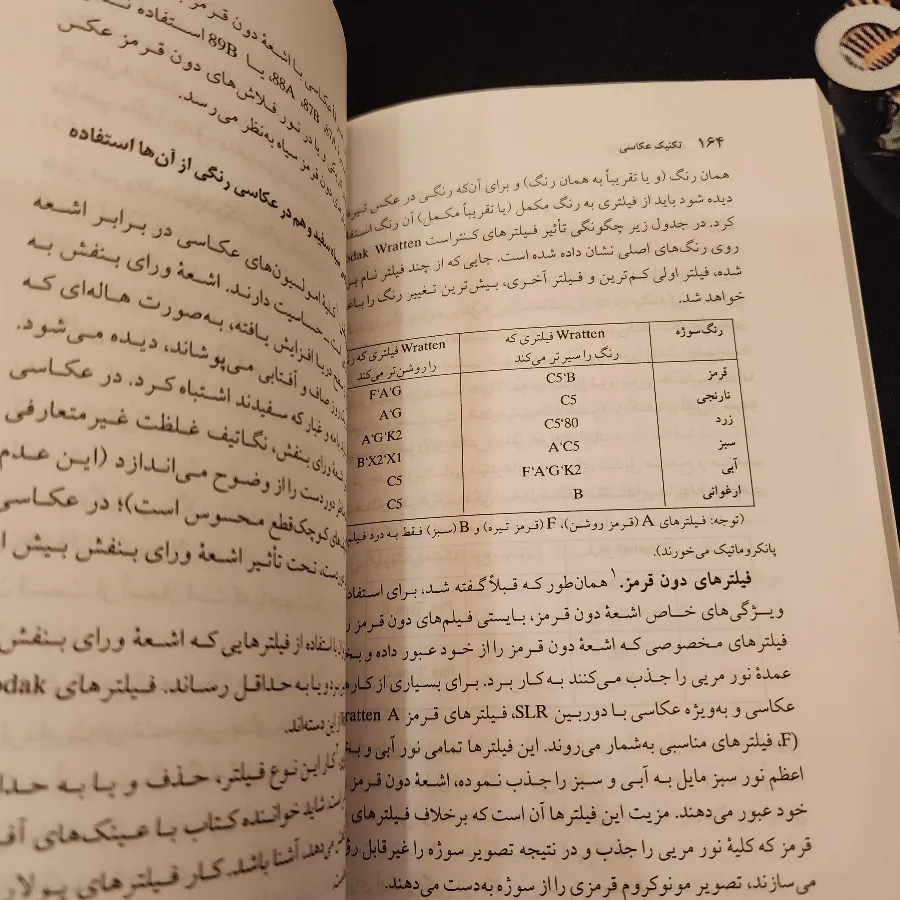 ۱۶۴ تکنیک عکاسی
همان رنگ (و یا تقریباً به همان رنگ) و برای آن‌که رنگی در عکس تیره
دیده شود باید از فیلتری به رنگ مکمل (یا تقریباً مکمل) آن رنگ استفا
کرد. در جدول زیر چگونگی تأثیر فیلترهای کنتراست odak Wratten
روی رنگ‌های اصلی نشان داده شده است. جایی که از چند فیلتر نام بر
شده، فیلتر اولی کم‌ترین و فیلتر آخری، بیش‌ترین تغییر رنگ را باع
خواهد شد.
رنگ سوژه Wratten فیلتری که رنگ را سیرتر می‌کند Wratten فیلتری که را روشن‌تر می‌کند
قرمز C5،B F،A،G
نارنجی C5 A،G
زرد C5،80 A،G،K2
سبز A،C5 B،X2،X1
آبی F،A،G،K2 C5
ارغوانی B C5
(توجه: فیلترهای A (قرمز روشن)، F (قرمز تیره) و B (سبز) فقط به درد فیلم
پانکروماتیک می‌خورند).
فیلترهای دون قرمز.۱ همان‌طور که قبلاً گفته شد، برای استفاد
ویژگی‌های خاص اشعهٔ دون قرمز، بایستی فیلم‌های دون قرمز ر
فیلترهای مخصوصی که اشعهٔ دون قرمز را از خود عبور داده و بخ
عمدهٔ نور مریی را جذب می‌کنند به کار برد. برای بسیاری از کاره
عکاسی و به‌ویژه عکاسی با دوربین SLR، فیلترهای قرمز ratten A
F)، فیلترهای مناسبی به‌شمار می‌روند. این فیلترها تمامی نور آبی و بخ
اعظم نور سبز مایل به آبی و سبز را جذب نموده، اشعهٔ دون قرمز
خود عبور می‌دهند. مزیت این فیلترها آن است که برخلاف فیلترهای
قرمز که کلیهٔ نور مریی را جذب و در نتیجه تصویر سوژه را غیرقابل رؤ
می‌سازند، تصویر مونوکروم قرمزی را از سوژه به‌دست می‌دهند.
عکاسی با اشعهٔ دون قرمز
87B، 88A، یا 89B استفاده
و یا در نور فلاش‌های دون قرمز عکس
دون قرمز سیاه به‌نظر می‌رسد.
سیاه و سفید و هم در عکاسی رنگی از آن‌ها استفاده
کلیهٔ امولسیون‌های عکاسی در برابر اشعه
حساسیت دارند. اشعهٔ ورای بنفش به
افزایش یافته، به‌صورت هاله‌ای که
صاف و آفتابی می‌پوشاند، دیده می‌شود.
و غبار که سفیدند اشتباه کرد. در عکاسی
ورای بنفش، نگاتیف غلظت غیرمتعارفی
دوردست را از وضوح می‌اندازد (این عدم
کوچک‌قطع محسوس است)؛ در عکاسی
تحت تأثیر اشعهٔ ورای بنفش بیش
با استفاده از فیلترهایی که اشعهٔ ورای بنفش
و یا به حداقل رساند. فیلترهای odak
از این دسته‌اند.
کار این نوع فیلتر، حذف و یا به حدا
شاید خوانندهٔ کتاب با عینک‌های آف
می‌دهد، آشنا باشد. کار فیلترهای پولار